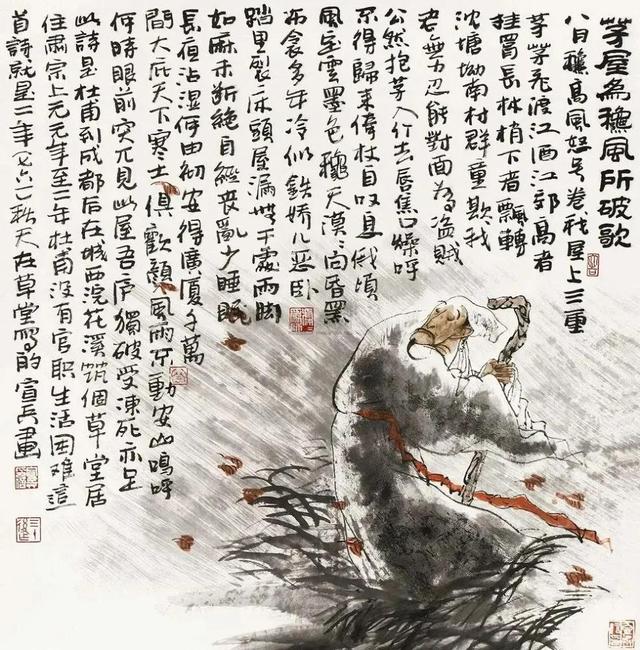 茅屋為穐風所破歌
八月穐高風怒号卷我屋上三重
茅茅飛渡江洒江郊高者
挂罥長林梢下者飄轉
沈塘坳南村群童欺我
老無力忍能對面為盗賊
公然抱茅入竹去唇焦口燥呼
不得歸来倚杖自叹息俄頃
風定雲墨色穐天漠漠向昏黑
布衾多年冷似鉄娇儿恶卧
踏里裂床頭屋漏無干處雨脚
如麻未断絕自經喪亂少睡眠
長夜沾湿何由彻安得廣厦千萬
間大庇天下寒士俱歡顏風雨不動安山嗚呼
何時眼前突兀見此屋吾庐獨破受凍死亦足
此詩是杜甫到成都后在城西浣花溪筑個草堂居
住肅宗上元元年至二年杜甫没有官职生活困难這
首詩就是二年七六一秋天在草堂写的